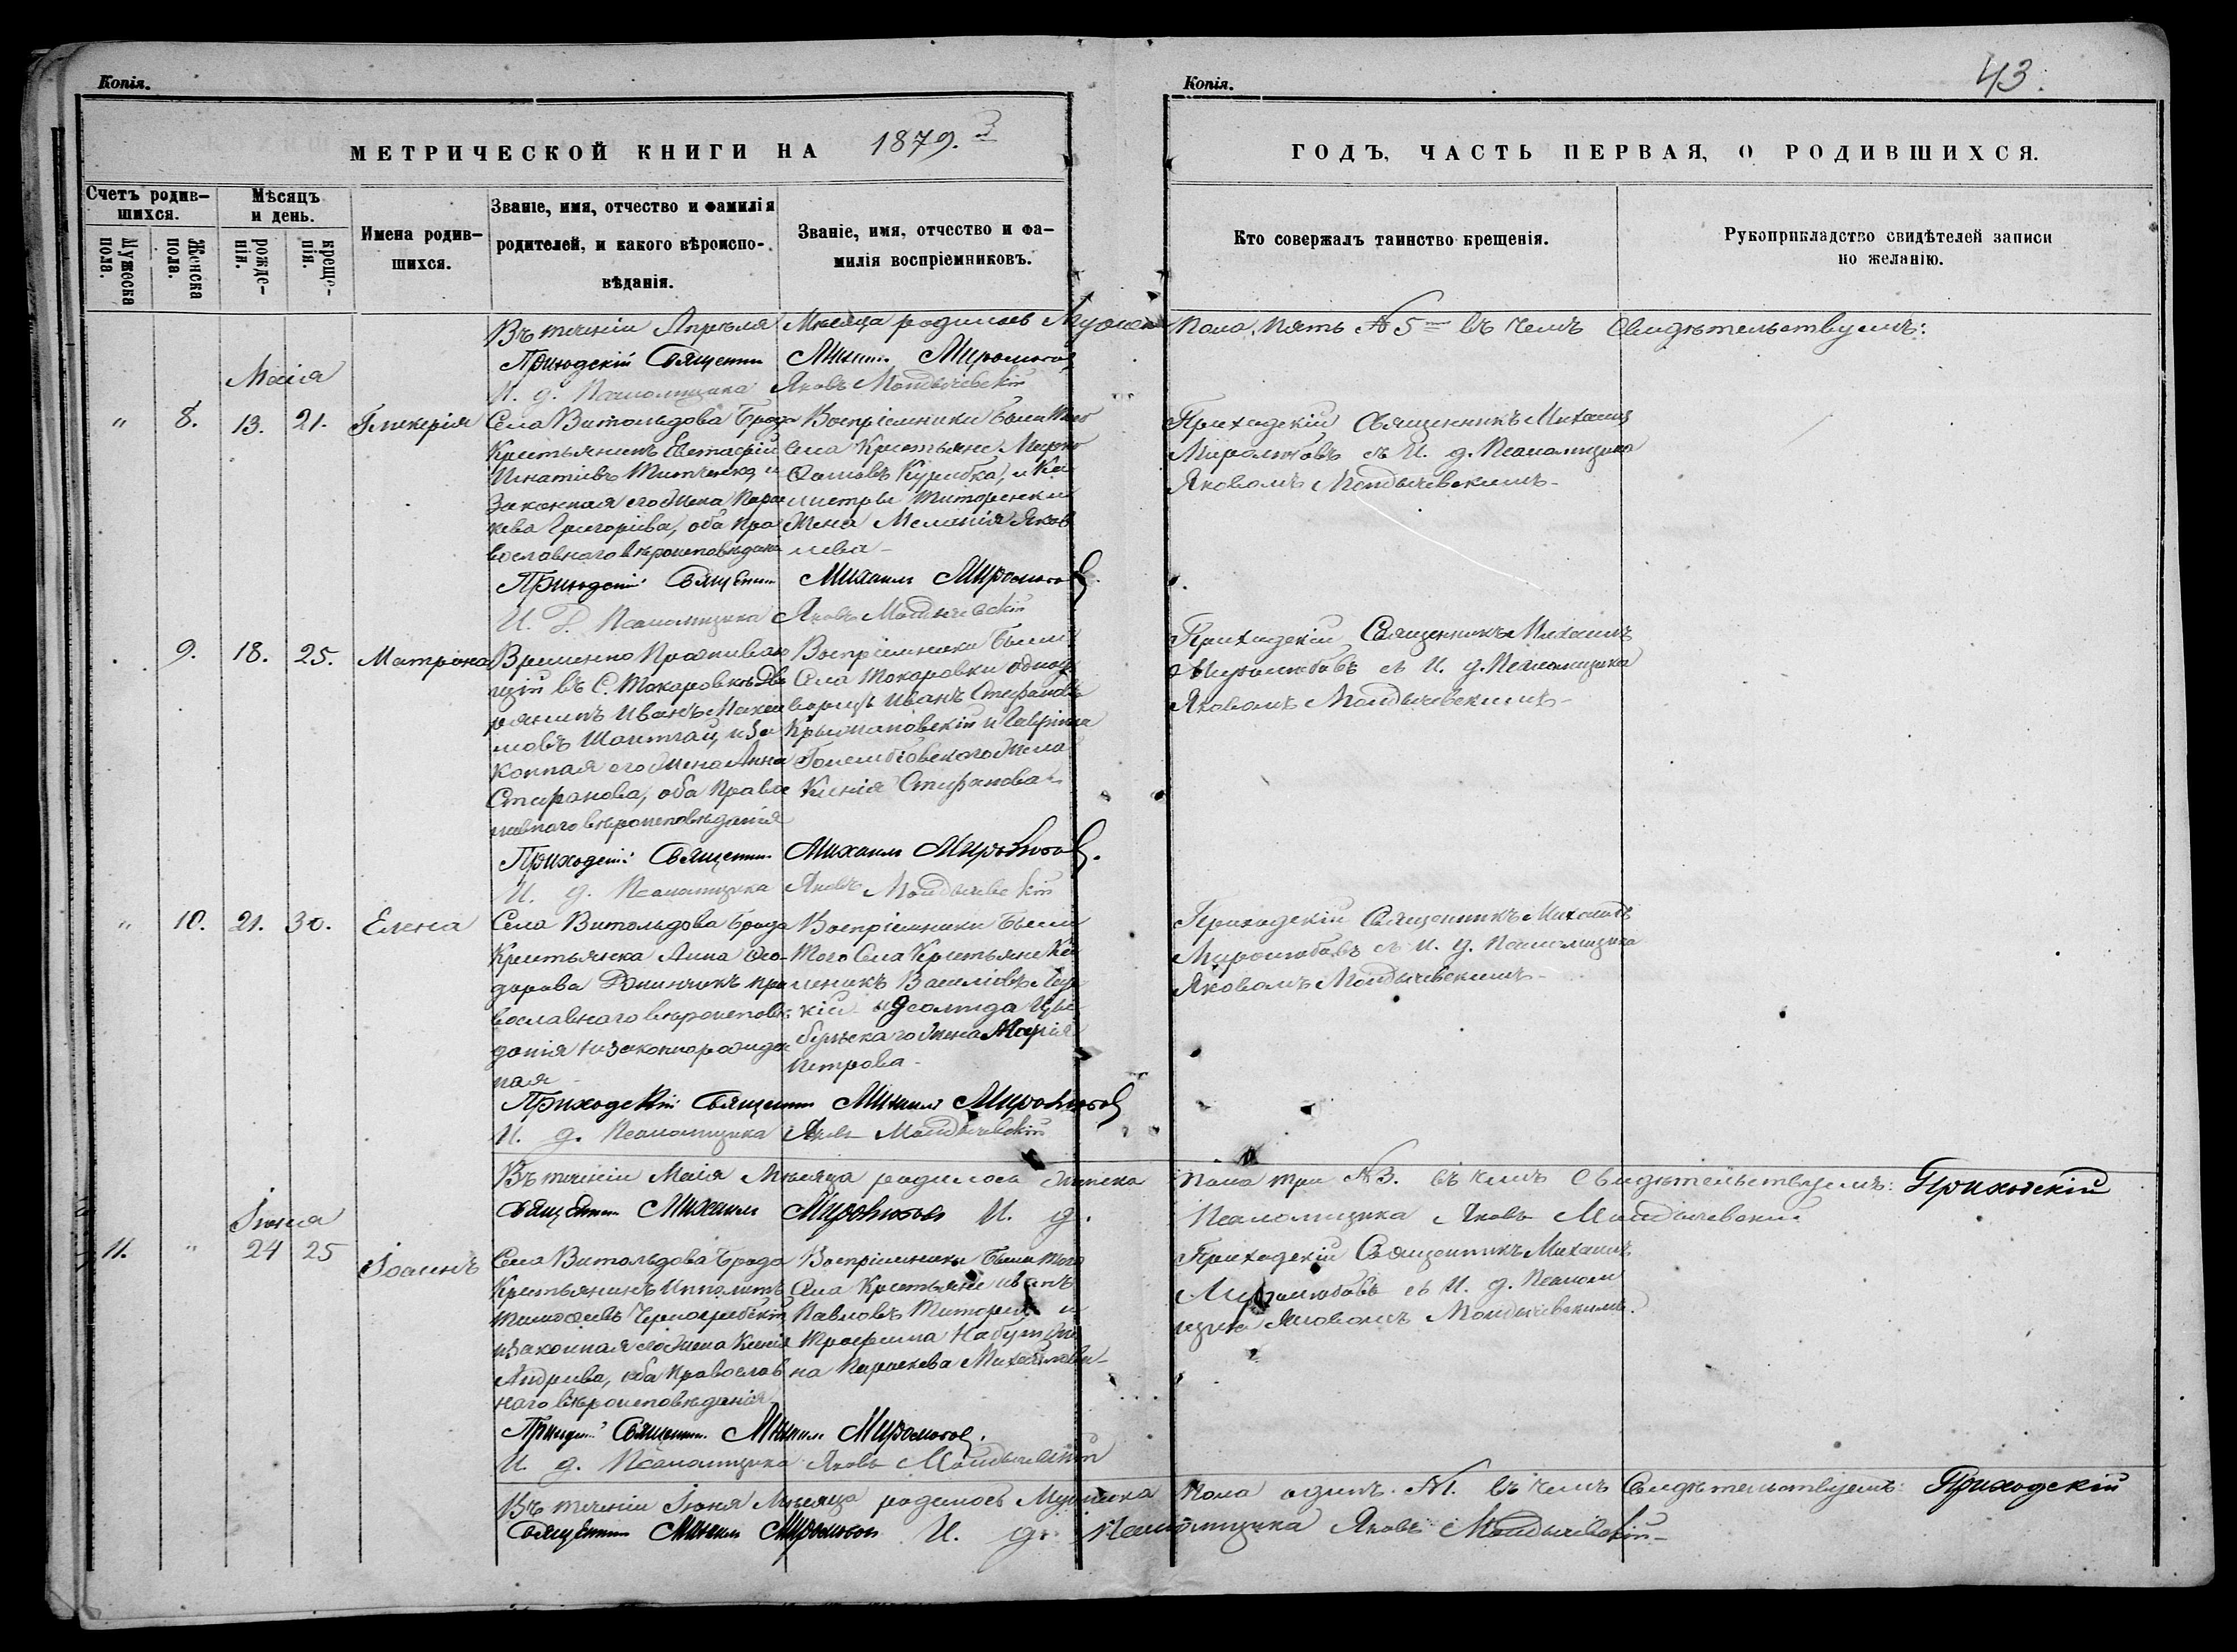 Копія.
Копія.
43.
МЕТРИЧЕСКОЙ КНИГИ НА 1879.
ГОДЪ, ЧАСТЬ ПЕРВАЯ, О РОДИВШИХСЯ.
Счетъ родив-
шихся.
Мужеска
пола.
Женска
пола.
Мѣсяцъ
и день.
рожде-
нія.
креще-
нія.
Имена родив-
шихся.
Званіе, имя, отчество и фамилія
родителей, и какого вѣроиспо-
вѣданія.
Званіе, имя, отчество и фа-
милія воспріемниковъ.
Кто совержалъ таинство крещенія.
Рукоприкладство свидѣтелей записи
по желанію.
Въ теченіи Апрѣля Мѣсяца родилось Мужеска Пола, Пять №5 въ чемъ Свидѣтельствуемъ:
Приходскій Священник Михаил Миролюбов
И. д. Псаломщика Яковъ
Маія
" 8. 13. 21. Гликерія
Села Витольдова Брода
Крестьянинъ Евстафій
Игнатіевъ и
Законная его Жена Парас
кева Григоріева, оба Пра
вославнаго вѣроисповѣдан
Воспріемники были того
села Крестьяне
и Ка
листры
Жена Меланія Яков
лева
Приходскій Священникъ Михаилъ
Миролюбовъ съ И. д. Псаломщика
Яковомъ
Приходскій Священник Михаил Миролюбов
И. Д. Псаломщика Яковъ
9. 18. 25. Матрона
Временно Проживаю
щій въ С. Токаровкѣ Дв
рянинъ Иванъ
и За
конная его Жена Анна
Стефанова, оба Право
славнаго вѣроисповѣданія
Воспріемники были
Села Токаровки однод
ворецъ Иванъ Стефановъ
и Гавріила
Жена
Ксенія Стефанова
Приходскій Священникъ Михаилъ
Миролюбовъ съ И. д. Псаломщика
Яковомъ
Приходскій Священник Михаил Миролюбов.
И. д. Псаломщика Яковъ
" 10. 21. 30. Елена
Села Витольдова Брода
Крестьянка Анна Ѳео
дорова пра
вославнаго вѣроисповѣ
данія незаконнорожден
ная
Воспріемники были
Того Села Крестьяне
Василіевъ
кій и
Жена Марія
Петрова
Приходскій Священникъ Михаилъ
Миролюбовъ съ И. д. Псаломщика
Яковомъ
Приходскій Священник Михаил Миролюбов
И. д. Псаломщика Яковъ
Въ теченіи Маія Мѣсяца родилось Женска Пола три №3. въ чемъ Свидѣтельствуемъ: Приходскій
Священник Михаил Миролюбов И. д. Псаломщика Яковъ
Іюня
11. " 24 25 Іоаннъ
Села Витольдова Брода
Крестьянинъ Ипполитъ
Тимофѣевъ
и законная его Жена Ксенія
Андреева, оба Православ
наго вѣроисповѣданія
Воспріемники были того
Села Крестьяне Иванъ
Павловъ и
Трофима
на Параскева Михайлова
Приходскій Священникъ Михаилъ
Миролюбовъ съ И. д. Псалом
щика Яковомъ
Приходскій Священник Михаил Миролюбов.
И. д. Псаломщика Яковъ
Въ теченіи Іюня Мѣсяца родилось Мужеска Пола одинъ. №1. въ чемъ Свидѣтельствуемъ: Приходскій
Священник Михаил Миролюбов И. д. Псаломщика Яковъ